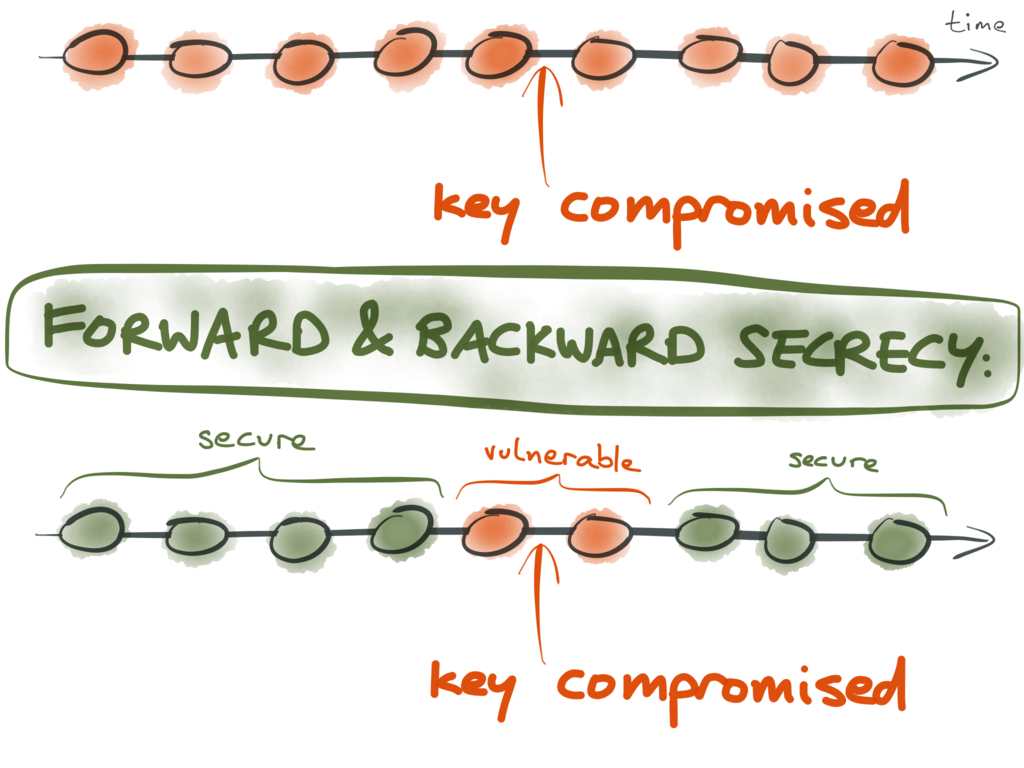 time
key compromised
FORWARD & BACKWARD SECRECY:
secure vulnerable secure
key compromised